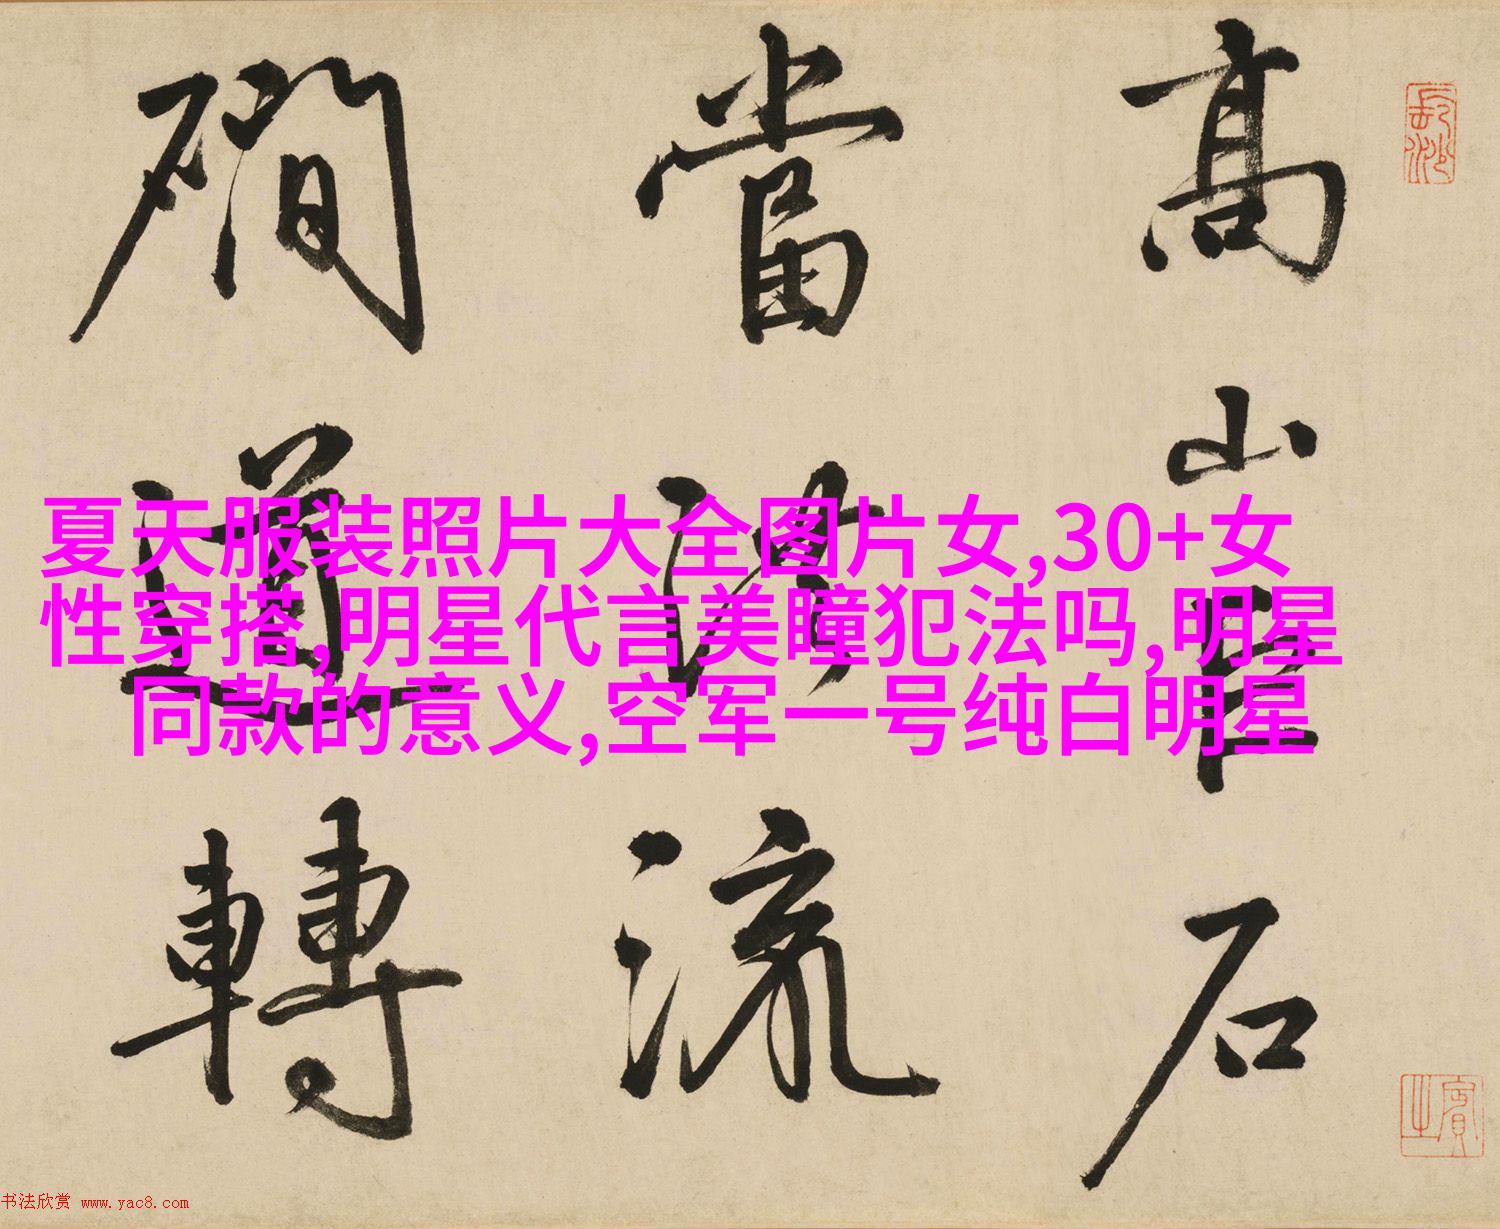 高山巨石
當洪流
磵道轉
長沙
賓之
夏天服装照片大全图片女,30+女
性穿搭,明星代言美瞳犯法吗,明星
同款的意义,空军一号纯白明星
书法欣赏 www.yac8.com